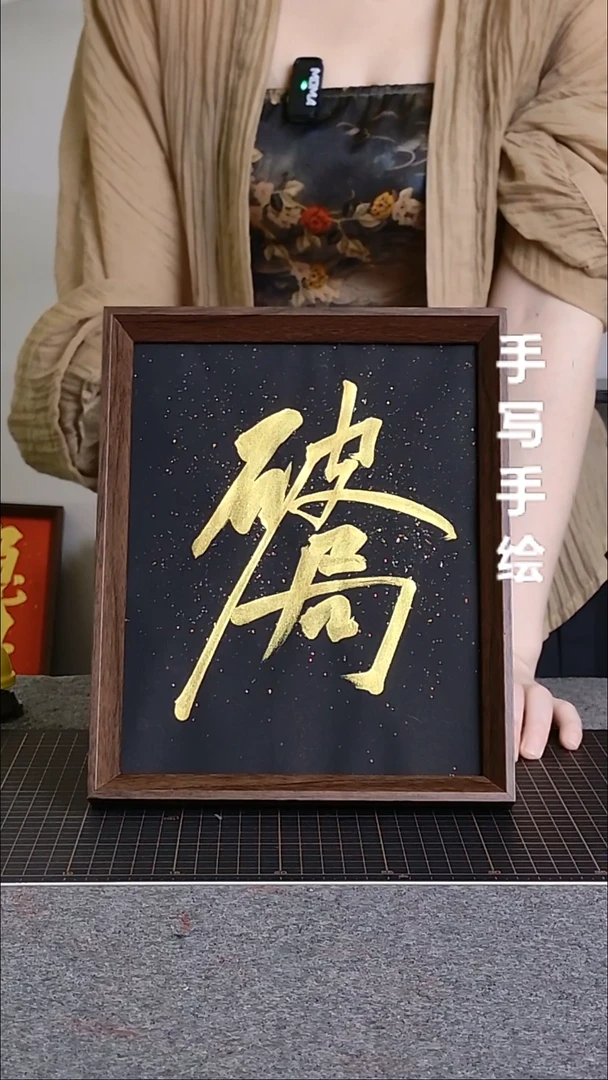 破局
手写手绘
MOMA